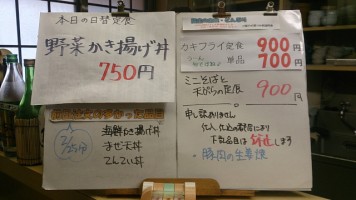 本日の日替定食
野菜かき揚げ丼
750円
海鮮かき揚げ丼
まぜ天丼
カキフライ定食 900円
単品 700円
ミニそばと
天ぷらの定食 900円
申し訳ありません
仕入、仕込の都合により
下記品目は
します
・豚肉の生姜焼